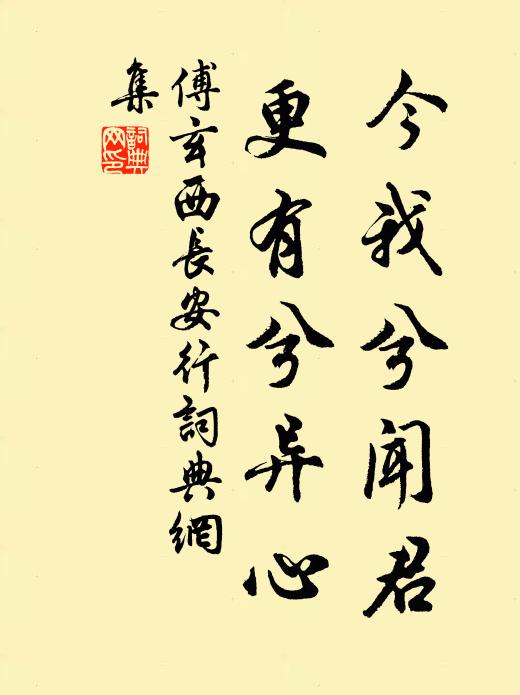 今我兮闻君
更有兮异心
傅玄西長安行詞典網
集
詞典
网印